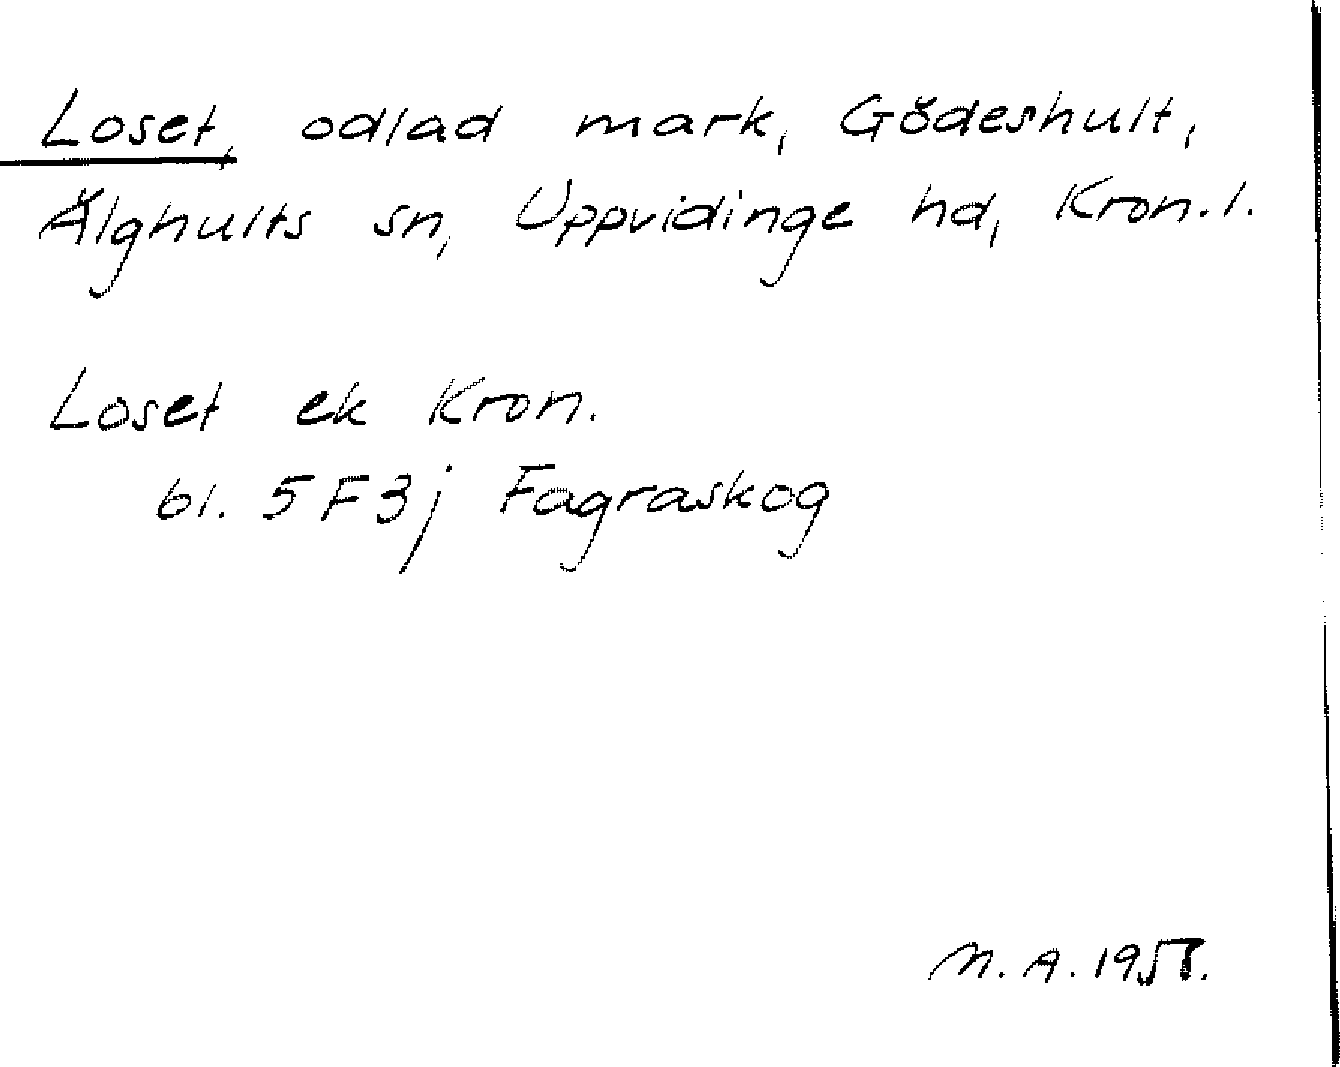 Loset, odlad mark, Gödeshult,
Älghults sn, Uppvidinge hd, Kron.l.
Loset ek Kron.
bl. 5F3j Fagraskog
M.A.